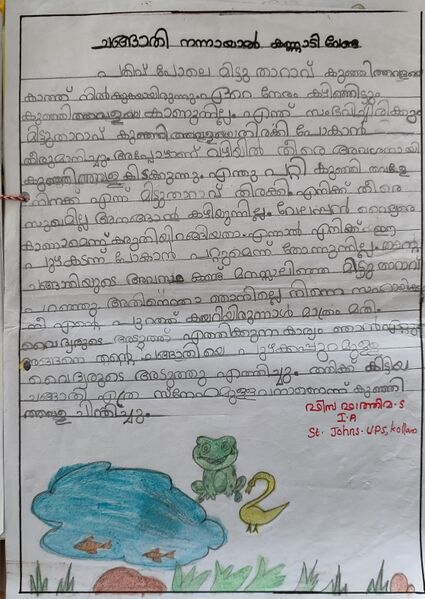 ചങ്ങാതി നന്നായാൽ കണ്ണാടി വേണ്ട
പതിവ് പോലെ മിട്ടു താറാവ് കുഞ്ഞിത്തവളയെ
കാത്ത് നിൽക്കുകയായിരുന്നു. ഏറെ നേരം കഴിഞ്ഞിട്ടും
കുഞ്ഞിത്തവളയെ കാണുന്നില്ല. എന്ത് സംഭവിച്ചിരിക്കും
മിട്ടുതാറാവ് കുഞ്ഞിത്തവളയെ തിരക്കി പോകാൻ
തീരുമാനിച്ചു. അപ്പോഴാണ് വഴിയിൽ തീരെ അവശനായി
കുഞ്ഞിത്തവള കിടക്കുന്നു. എന്തു പറ്റി കുഞ്ഞിത്തവളേ
നിനക്ക് എന്ന് മിട്ടുതാറാവ് തിരക്കി. എനിക്ക് തീരെ
സുഖമില്ല അനങ്ങാൻ കഴിയുന്നില്ല. വൈദ്യരെ
കാണാമെന്ന് കരുതിയിറങ്ങിയതാ. എന്നാൽ എനിക്ക് ഈ
പുഴകടന്ന് പോകാൻ പറ്റുമെന്ന് തോന്നുന്നില്ല. തന്റെ
ചങ്ങാതിയുടെ അവസ്ഥ കണ്ട് മനസ്സലിഞ്ഞ മിട്ടു താറാവ്
പറഞ്ഞു അതിനെന്താ ഞാനില്ലെ നിന്നെ സഹായിക്കാൻ
നീ എന്റെ പുറത്ത് കയറിയിരുന്നാൽ മാത്രം മതി.
വൈദ്യരുടെ അടുത്ത് എത്തിക്കുന്ന കാര്യം ഞാൻ ഏറ്റു
അങ്ങനെ തന്റെ ചങ്ങാതിയെ പുഴക്കപ്പുറമുള്ള
വൈദ്യരുടെ അടുത്തു എത്തിച്ചു. തനിക്ക് കിട്ടിയ
ചങ്ങാതി എത്ര സ്നേഹമുള്ളവനാണെന്ന് കുഞ്ഞി
ത്തവള ചിന്തിച്ചു.
ഫിസ ഫാത്തിമ. S
I. A
St. Johns. UPS, Kollam